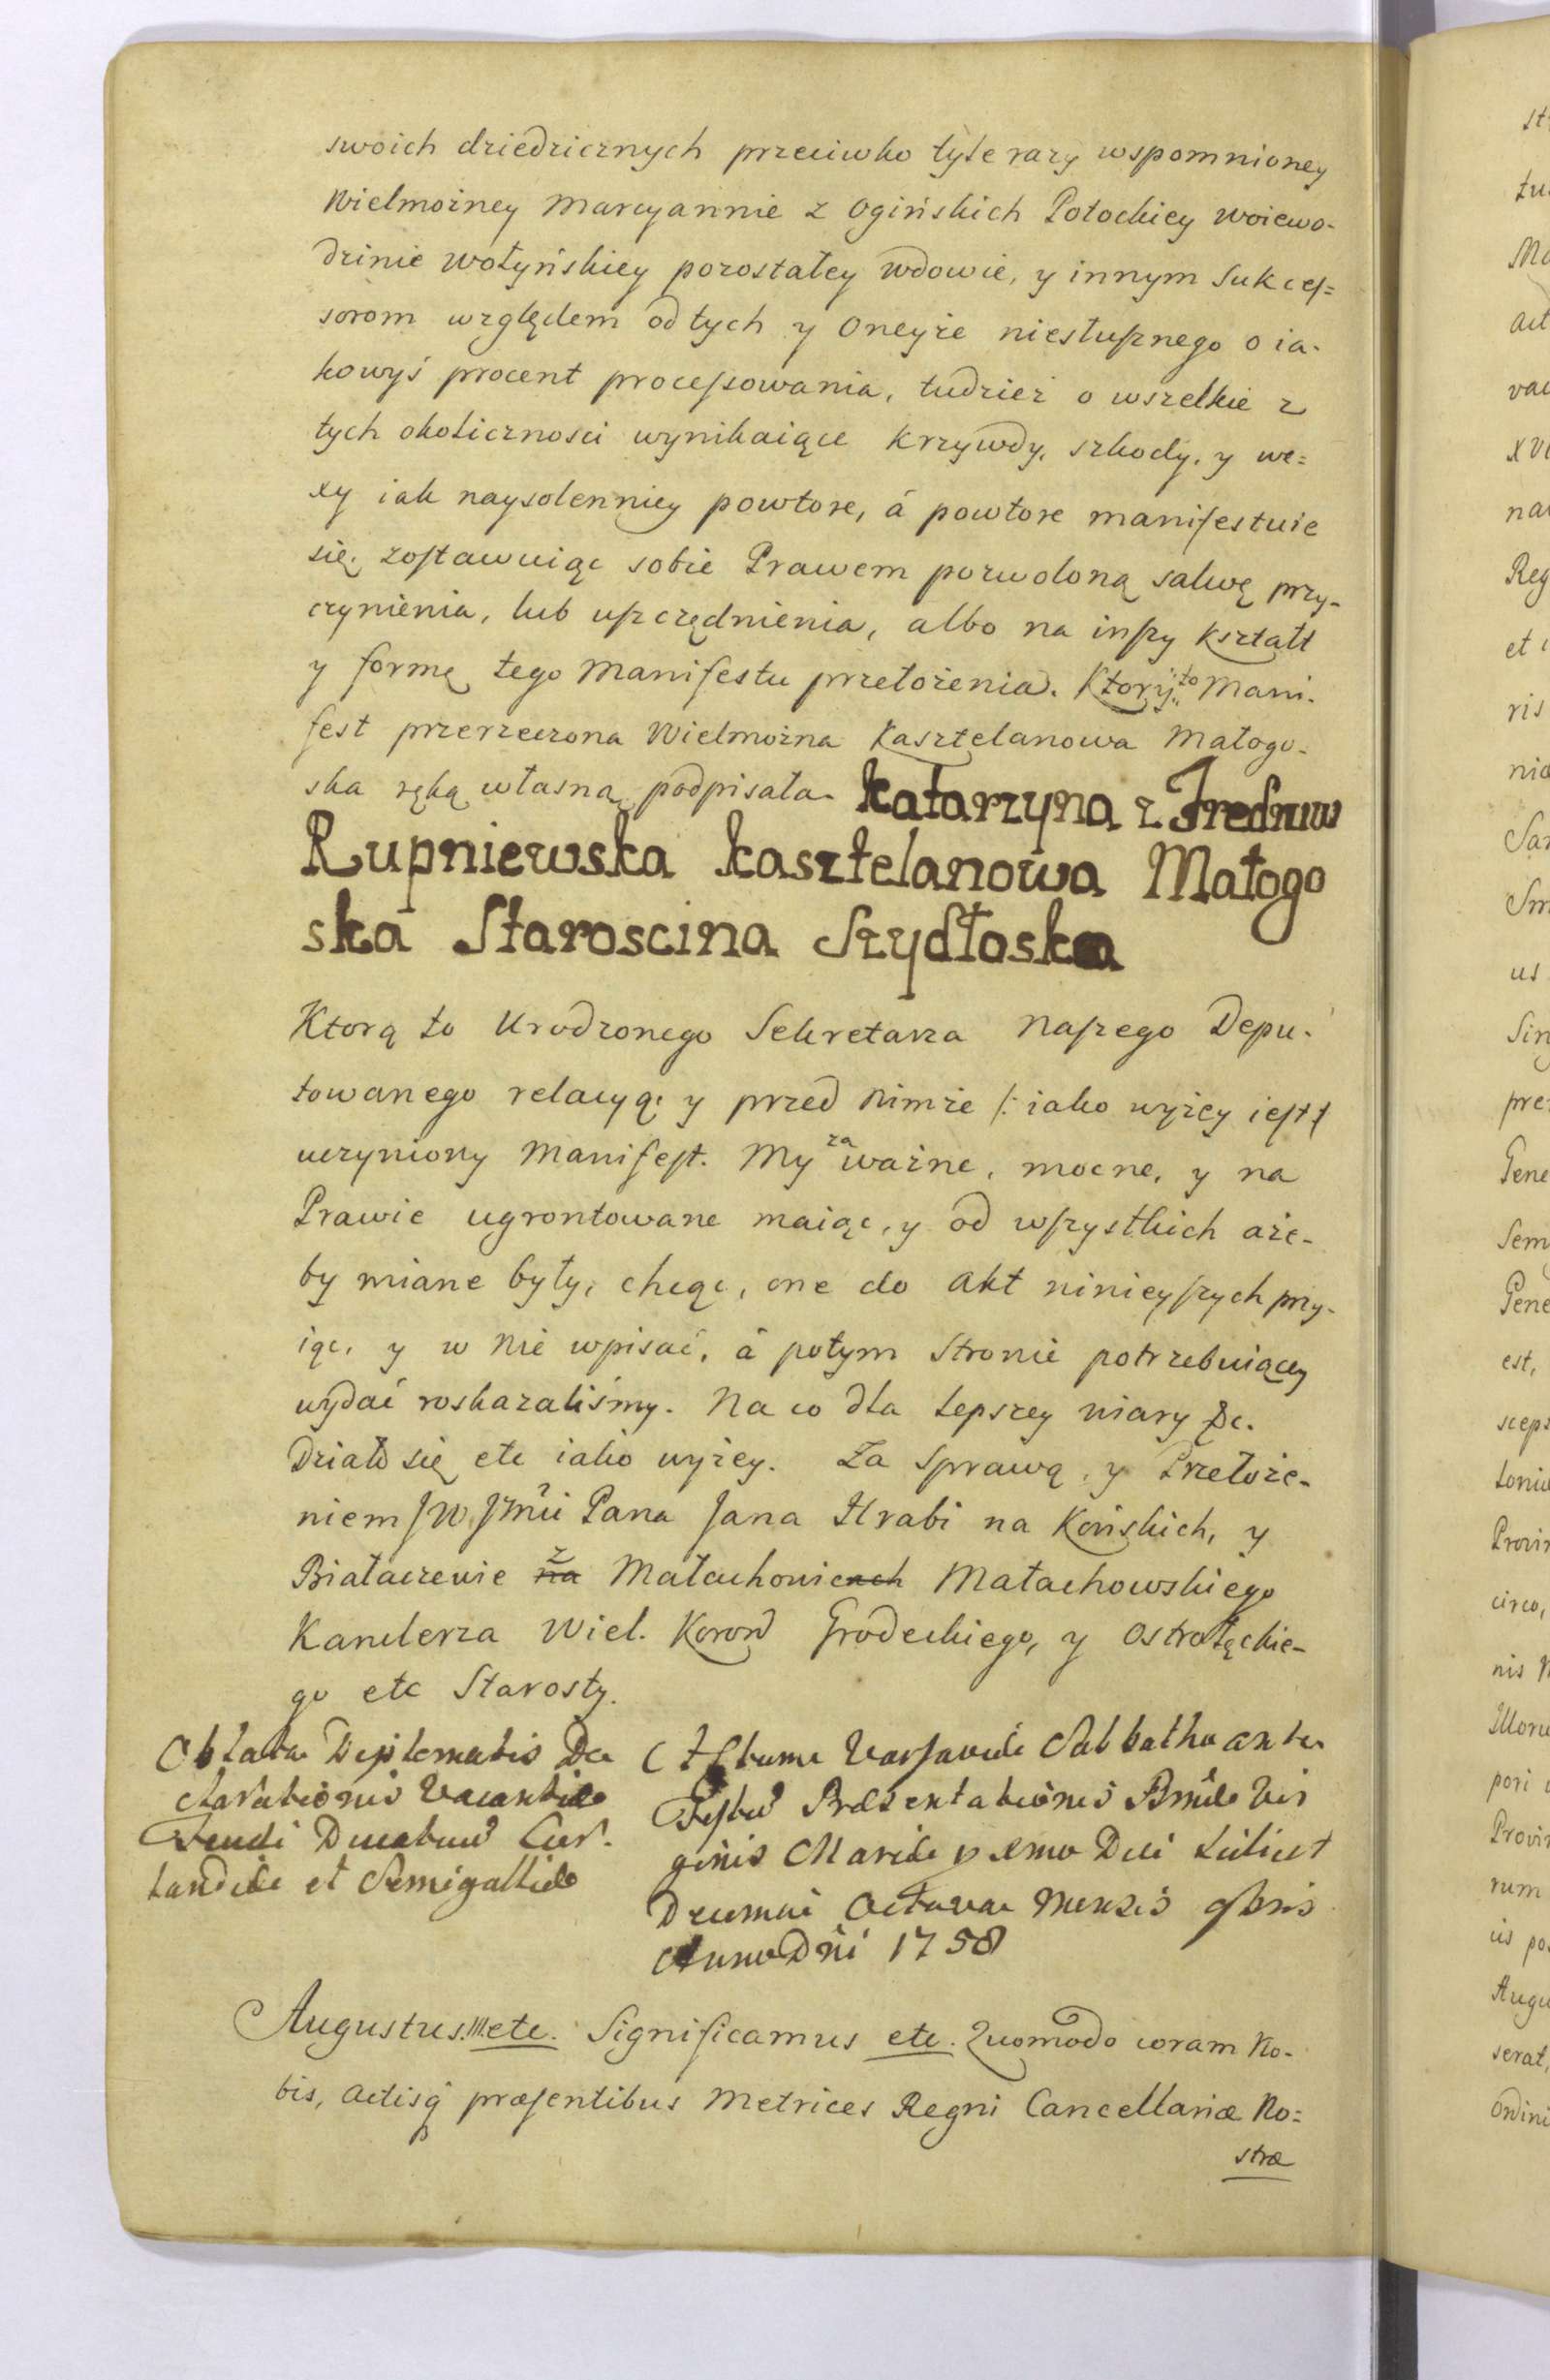 swoich dziedzicznych przeciwko tyle razy wspomnioney
Wielmożney Marcyannie z Ogińskich Potockiey Woiewo-
dzinie Wołyńskiey pozostałey Wdowie, y innym Sukces=
sorom względem od tych y Oneyże niesłusznego o ia-
kowyś procent processowania, tudzież o wszelkie z
tych okoliczności wynikaiące Krzywdy, szkody, y we=
xy iak naysolenniey powtore, á powtore manifestuie
się, zostawuiąc sobie Prawem pozwoloną salwę przy-
czynienia, lub uszczędnienia, albo na inszy Kształt
y formę tego Manifestu przełożenia. Ktory to Mani-
fest przerzeczona Wielmożna Kasztelanowa Małogo-
ska ręką własną podpisała. Katarzyna z Fredruw
Rupniewska Kasztelanowa Małogo
ska Staroscina Szydłoska
Ktorą to Urodzonego Sekretarza Naszego Depu-
towanego relacyą, y przed Nimże /: iako wyżey iest :/
uczyniony Manifest. My za ważne, mocne, y na
Prawie ugrontowane maiąc, y od wszystkich aże-
by miane były, chcąc, one do Akt ninieyszych przy-
iąc, y w Nie wpisać, á potym Stronie potrzebuiącey
wydać roskazaliśmy. Na co dla lepszey wiary &c.
Działo się etc iako wyżey. Za Sprawą, y Przełoże-
niem JW Jmci Pana Jana Hrabi na Końskich, y
Białaczewie na z Małachowicach Małachowskiego
Kanclerza Wiel. Koron Grodeckiego, y Ostrołęckie-
go etc Starosty.
Oblata Diplomatis De
clarationis Vacantiae
Feudi Ducatuum Cur
landiae et Semigalliae
Actum Varsaviae Sabbatho ante
Festum Praesentationis Bmae Vir
ginis Mariae pxmo Die scilicet
Decima Octava Mensis 9bris
Anno Dni 1758
Augustus III etc. Significamus etc. Quomodo coram No-
bis, Actisq praesentibus Metrices Regni Cancellariæ No=
stræ